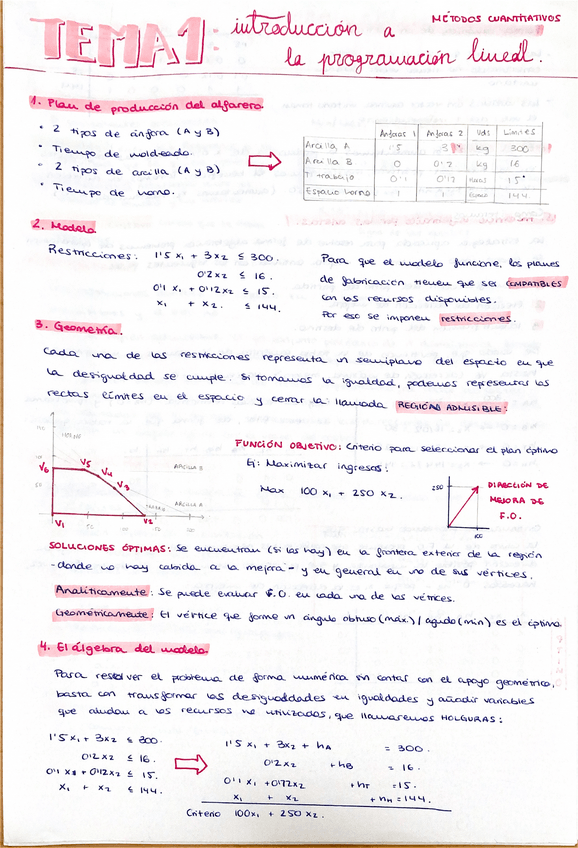 MÉTODOS CUANTITATIVOS
TEMA 1: introducción a
la programación lineal.
1. Plan de producción del alfarero.
• 2 tipos de ánfora (A y B)
• Tiempo de moldeado.
• 2 tipos de arcilla (A y B)
• Tiempo de horno.
Ánforas 1 Ánforas 2 Uds Límites
Arcilla A 1'5 3 kg 300
Arcilla B 0 0'2 kg 16
T. trabajo 0'1 0'12 15
Espacio horno 1 1 144
2. Modelo.
Restricciones: 1'5 x1 + 3x2 ≤ 300.
0'2x2 ≤ 16.
0'1 x1 + 0'12x2 ≤ 15.
x1 + x2. ≤ 144.
Para que el modelo funcione, los planes
de fabricación tienen que ser COMPATIBLES
con los recursos disponibles.
Por eso se imponen restricciones.
3. Geometría.
Cada una de las restricciones representa un semiplano del espacio en que
la desigualdad se cumple. Si tomamos la igualdad, podemos representar las
rectas límites en el espacio y cerrar la llamada REGIÓN ADMISIBLE:
V6 V5 V4 V3
V1 V2
ARCILLA B
ARCILLA A
50 100 150
FUNCIÓN OBJETIVO: Criterio para seleccionar el plan óptimo
Ej: Maximizar ingresos:
Max 100 x1 + 250 x2.
250
100
DIRECCIÓN DE
MEJORA DE
F.O.
SOLUCIONES ÓPTIMAS: Se encuentran (si las hay) en la frontera exterior de la región
-donde no hay cabida a la mejora- y en general en uno de sus vértices.
Analíticamente: Se puede evaluar F.O. en cada uno de los vétices.
Geométricamente: El vértice que forme un ángulo obtuso (máx.) / agudo (min) es el óptimo.
4. El álgebra del modelo.
Para resolver el problema de forma numérica sin contar con el apoyo geométrico,
basta con transformar las desigualdades en igualdades y añadir variables
que aludan a los recursos no utilizados, que llamaremos HOLGURAS:
1'5 x1 + 3x2 ≤ 300.
0'2 x2 ≤ 16.
0'1 x1 + 0'12x2 ≤ 15.
x1 + x2 ≤ 144.
1'5 x1 + 3x2 + hA = 300.
0'2x2 + hB = 16.
0'1 x1 + 0'12x2 + hT = 15.
x1 + x2 + hH = 144.
Criterio 100x1 + 250 x2.